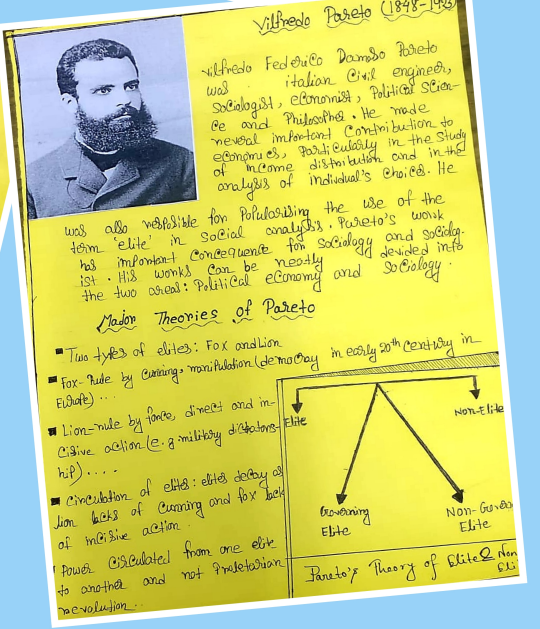 Vilfredo Pareto (1848-1923)
Vilfredo Federico Damaso Pareto
was italian Civil engineer,
Sociologist, economist, Political Scien-
ce and Philosopher. He made
several important Contribution to
economics, Particularly in the Study
of income distribution and in the
analysis of individual's choice. He
was also resposible for Popularising the use of the
term 'elite' in Social analysis. Pareto's work
has important consequence for sociology and sociolog-
ist. His works can be neatly devided into
the two areas: Political economy and sociology.
Major Theories of Pareto
Two types of elites: Fox and Lion
Fox-rule by Cunning, manipulation (democray in early 20th century in
Europe)...
Lion-rule by force, direct and in-
cisive action (e.g. military dictators-
hip)....
Circulation of elits: elites decay as
lion lacks of Cunning and fox lack
of incisive action.
Power circulated from one elite
to another and not Proletarian
revolution..
Elite
Non-Elite
Governing
Elite
Non-Govern
Elite
Pareto's Theory of Elite & Non
Eli